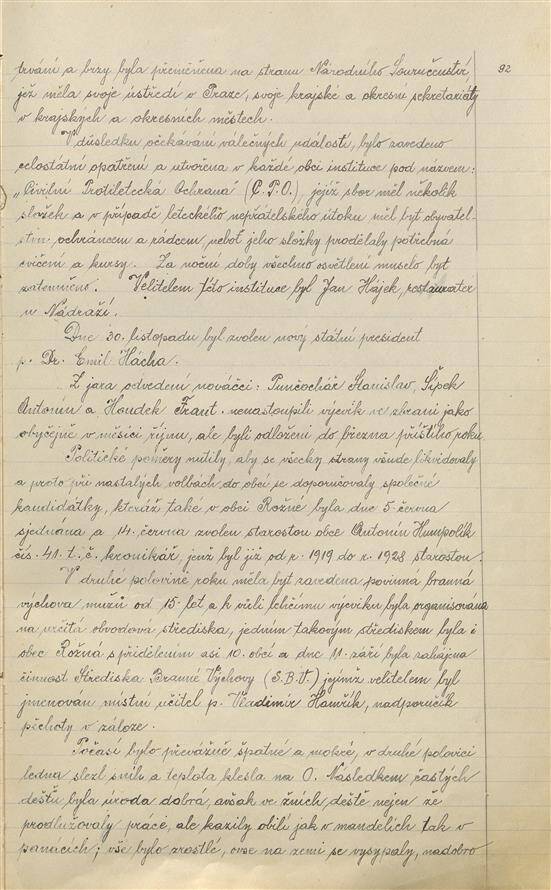 92
trvání a brzy byla přeměněna na stranu Národního Souručenství,
jež měla svoje ústředí v Praze, svoje krajské a okresní sekretariáty
v krajských a okresních městech.
V důsledku očekávání válečných událostí, bylo zavedeno
celostátní opatření a utvořena v každé obci instituce pod názvem:
„Civilní Protiletecká Ochrana (C.P.O.), jejíž sbor měl několik
složek a v případě leteckého nepřátelského útoku měl být obyvatel-
stvu ochráncem a rádcem, neboť jeho složky prodělaly potřebná
cvičení a kursy. Za noční doby všechno osvětlení muselo být
zatemněno. Velitelem této instituce byl Jan Hájek, restaurater
u Nádraží.
Dne 30. listopadu byl zvolen nový státní president
p. Dr. Emil Hácha.
Z jara odvedení nováčci: Punčochář Stanislav, Šípek
Antonín a Houdek Frant. nenastoupili výcvik ve zbrani jako
obyčejně v měsíci říjnu, ale byli odloženi do března příštího roku.
Politické poměry nutily, aby se všecky strany všude likvidovaly
a proto při nastalých volbách do obcí se doporučovaly společné
kandidátky, kteráž také v obci Rožné byla dne 5. června
sjednána a 14. června zvolen starostou obce Antonín Humpolík
čís. 41. t. č. kronikář, jenž byl již od r. 1919 do r. 1928 starostou.
V druhé polovině roku měla být zavedena povinná branná
výchova mužů od 15. let a k vůli lehčímu výcviku byla organisována
na určitá obvodová střediska, jedním takovým střediskem byla i
obec Rožná s přidělením asi 10. obcí a dne 11. září byla zahájena
činnost Střediska Branné Výchovy (S.B.V.) jejímž velitelem byl
jmenován místní učitel p. Vladimír Hamřík, nadporučík
pěchoty v záloze.
Počasí bylo převážně špatné a mokré, v druhé polovici
ledna slezl sníh a teplota klesla na 0. Následkem častých
dešťů byla úroda dobrá, avšak ve žních deště nejen že
prodlužovaly práce, ale kazily obilí jak v mandelích tak v
panácích; vše bylo zrostlé, ovse na zemi se vysypaly, nadobro